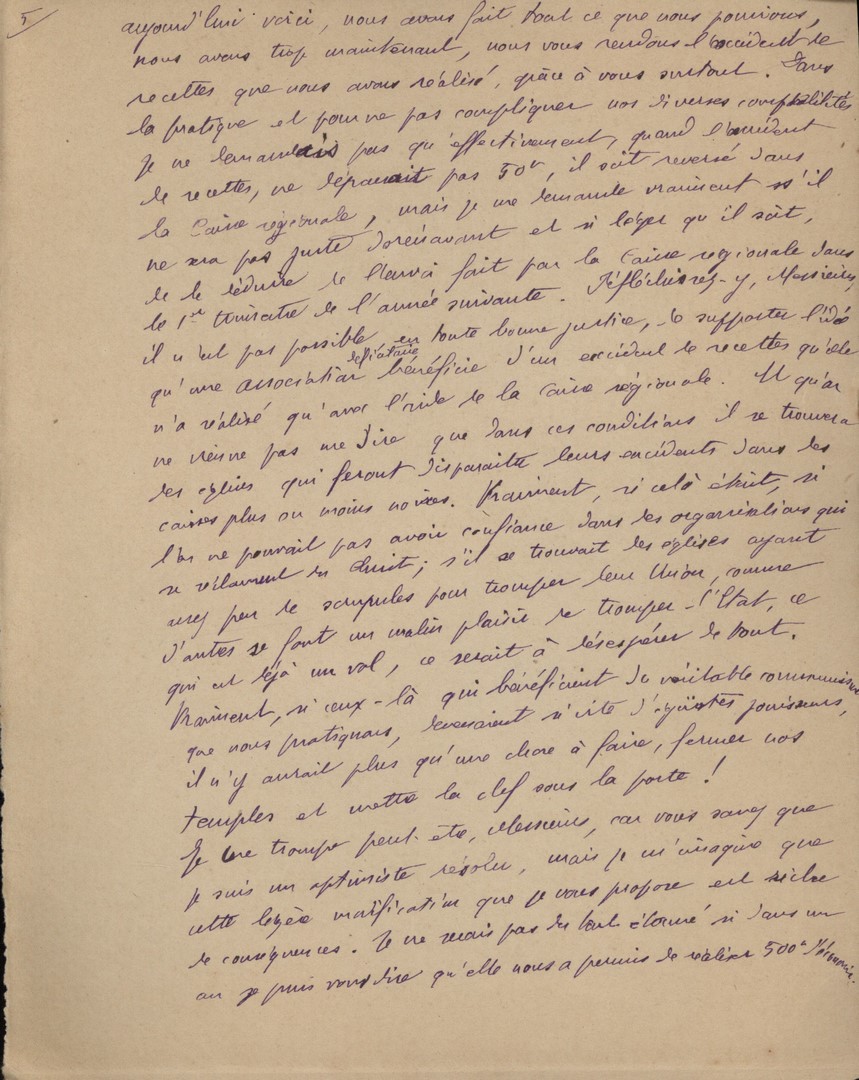 5.
aujourd'hui voici, nous avons fait tout ce que nous pouvions,
nous avons trop maintenant, nous vous rendons l'excédent de
recettes que nous avons réalisé, grâce à vous surtout. Dans
la pratique et pour ne pas compliquer nos diverses comptabilités
je ne demandais pas qu'effectivement, quand l'excédent
de recettes, ne dépassait pas 50f, il soit reversé dans
la Caisse régionale, mais je me demande vraiment s'il
ne sera pas juste dorénavant et si léger qu'il soit,
de le déduire de l'envoi fait par la Caisse régionale dans
le 1er trimestre de l'année suivante. Réfléchissez-y, Messieurs,
il n'est pas possible en toute bonne justice, de supporter l'idée
qu'une association déficitaire bénéficie d'un excédent de recettes qu'elle
n'a réalisé qu'avec l'aide de la Caisse régionale. Et qu'on
ne vienne pas me dire que dans ces conditions il se trouvera
des églises qui feront disparaître leurs excédents dans des
caisses plus ou moins noires. Vraiment, si cela était, si
l'on ne pouvait pas avoir confiance dans des organisations qui
se réclament du Christ; s'il se trouvait des églises ayant
assez peu de scrupules pour tromper leur Union, comme
d'autres se font un malin plaisir de tromper l'Etat, ce
qui est déjà un vol, ce serait à désespérer de tout.
Vraiment, si ceux-là qui bénéficient du véritable communisme
que nous pratiquons, devenaient si vite d'égoïstes jouisseurs,
il n'y aurait plus qu'une chose à faire, fermer nos
temples et mettre la clef sous la porte!
Je me trompe peut-être, Messieurs, car vous savez que
je suis un optimiste résolu, mais je m'imagine que
cette légère modification que je vous propose est riche
de conséquences. Je ne serais pas du tout étonné si dans un
an je puis vous dire qu'elle nous a permis de réaliser 500f d'économie.